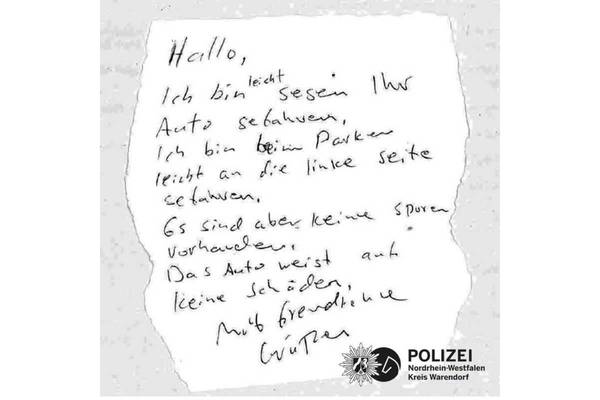 Hallo,
Ich bin leicht gegen Ihr
Auto gefahren,
Ich bin beim Parken
leicht an die linke seite
gefahren.
Es sind aber keine sporen
vorhanden.
Das Auto weist auf
keine schäden,
Mit freundliche
Grüßen
POLIZEI
Nordrhein-Westfalen
Kreis Warendorf